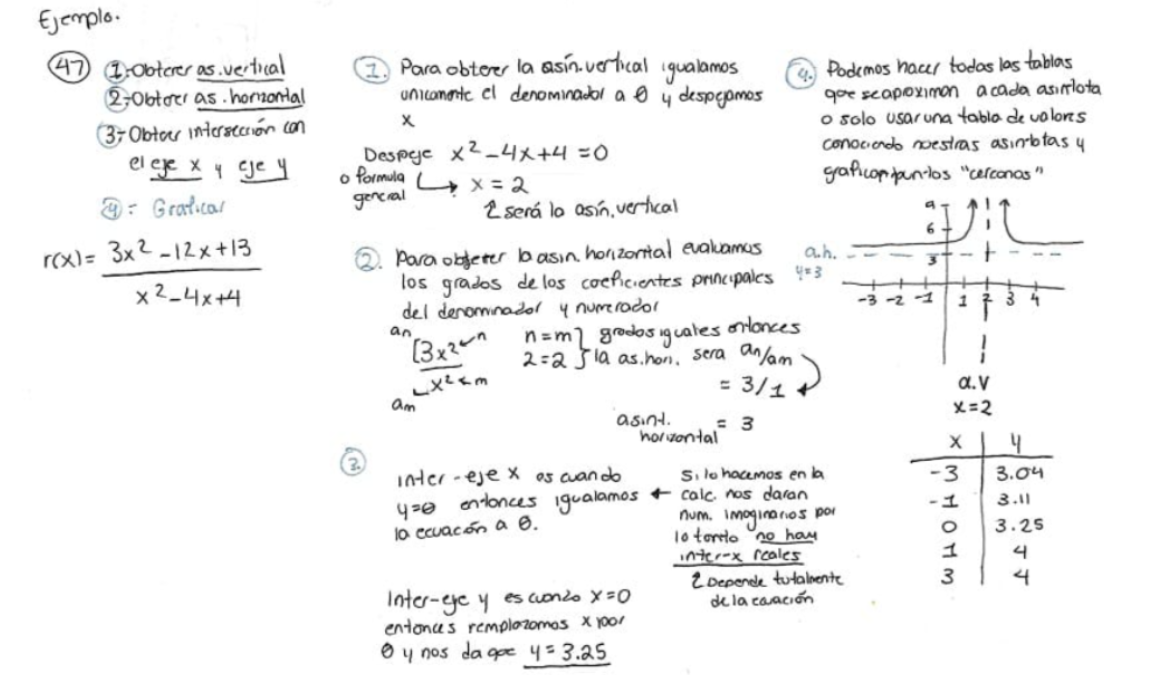 Ejemplo.
47 1-Obtener as. vertical
2-Obtener as. horizontal
3-Obtener intersección con
el eje x y eje y
4 = Graficar
r(x)= 3x² -12x+13
x²-4x+4
1. Para obtener la asín. vertical igualamos
unicamente el denominador a 0 y despejamos
x
Despeje x²-4x+4 =0
o formula
general → x = 2
será la asín. vertical
2. Para obtener la asin. horizontal evaluamos
los grados de los coeficientes principales
del denominador y numerador
an
3x² ← n
x² ← m
am
n=m } grados iguales entonces
2=2 } la as. hori. sera an/am
= 3/1
asint.
horizontal = 3
3.
inter-eje x es cuando
y=0 entonces igualamos
la ecuación a 0.
Si lo hacemos en la
calc. nos daran
num. imaginarios por
lo tanto no hay
inter-x reales
Depende totalmente
de la ecuación
Inter-eje y es cuando x=0
entonces remplazamos x por
0 y nos da que y = 3.25
4. Podemos hacer todas las tablas
que se aproximan a cada asintota
o solo usar una tabla de valores
conociendo nuestras asintotas y
graficar puntos "cercanos"
9
6
3
a.h.
y=3
-3 -2 -1 1 2 3 4
a.v
x=2
x y
-3 3.04
-1 3.11
0 3.25
1 4
3 4